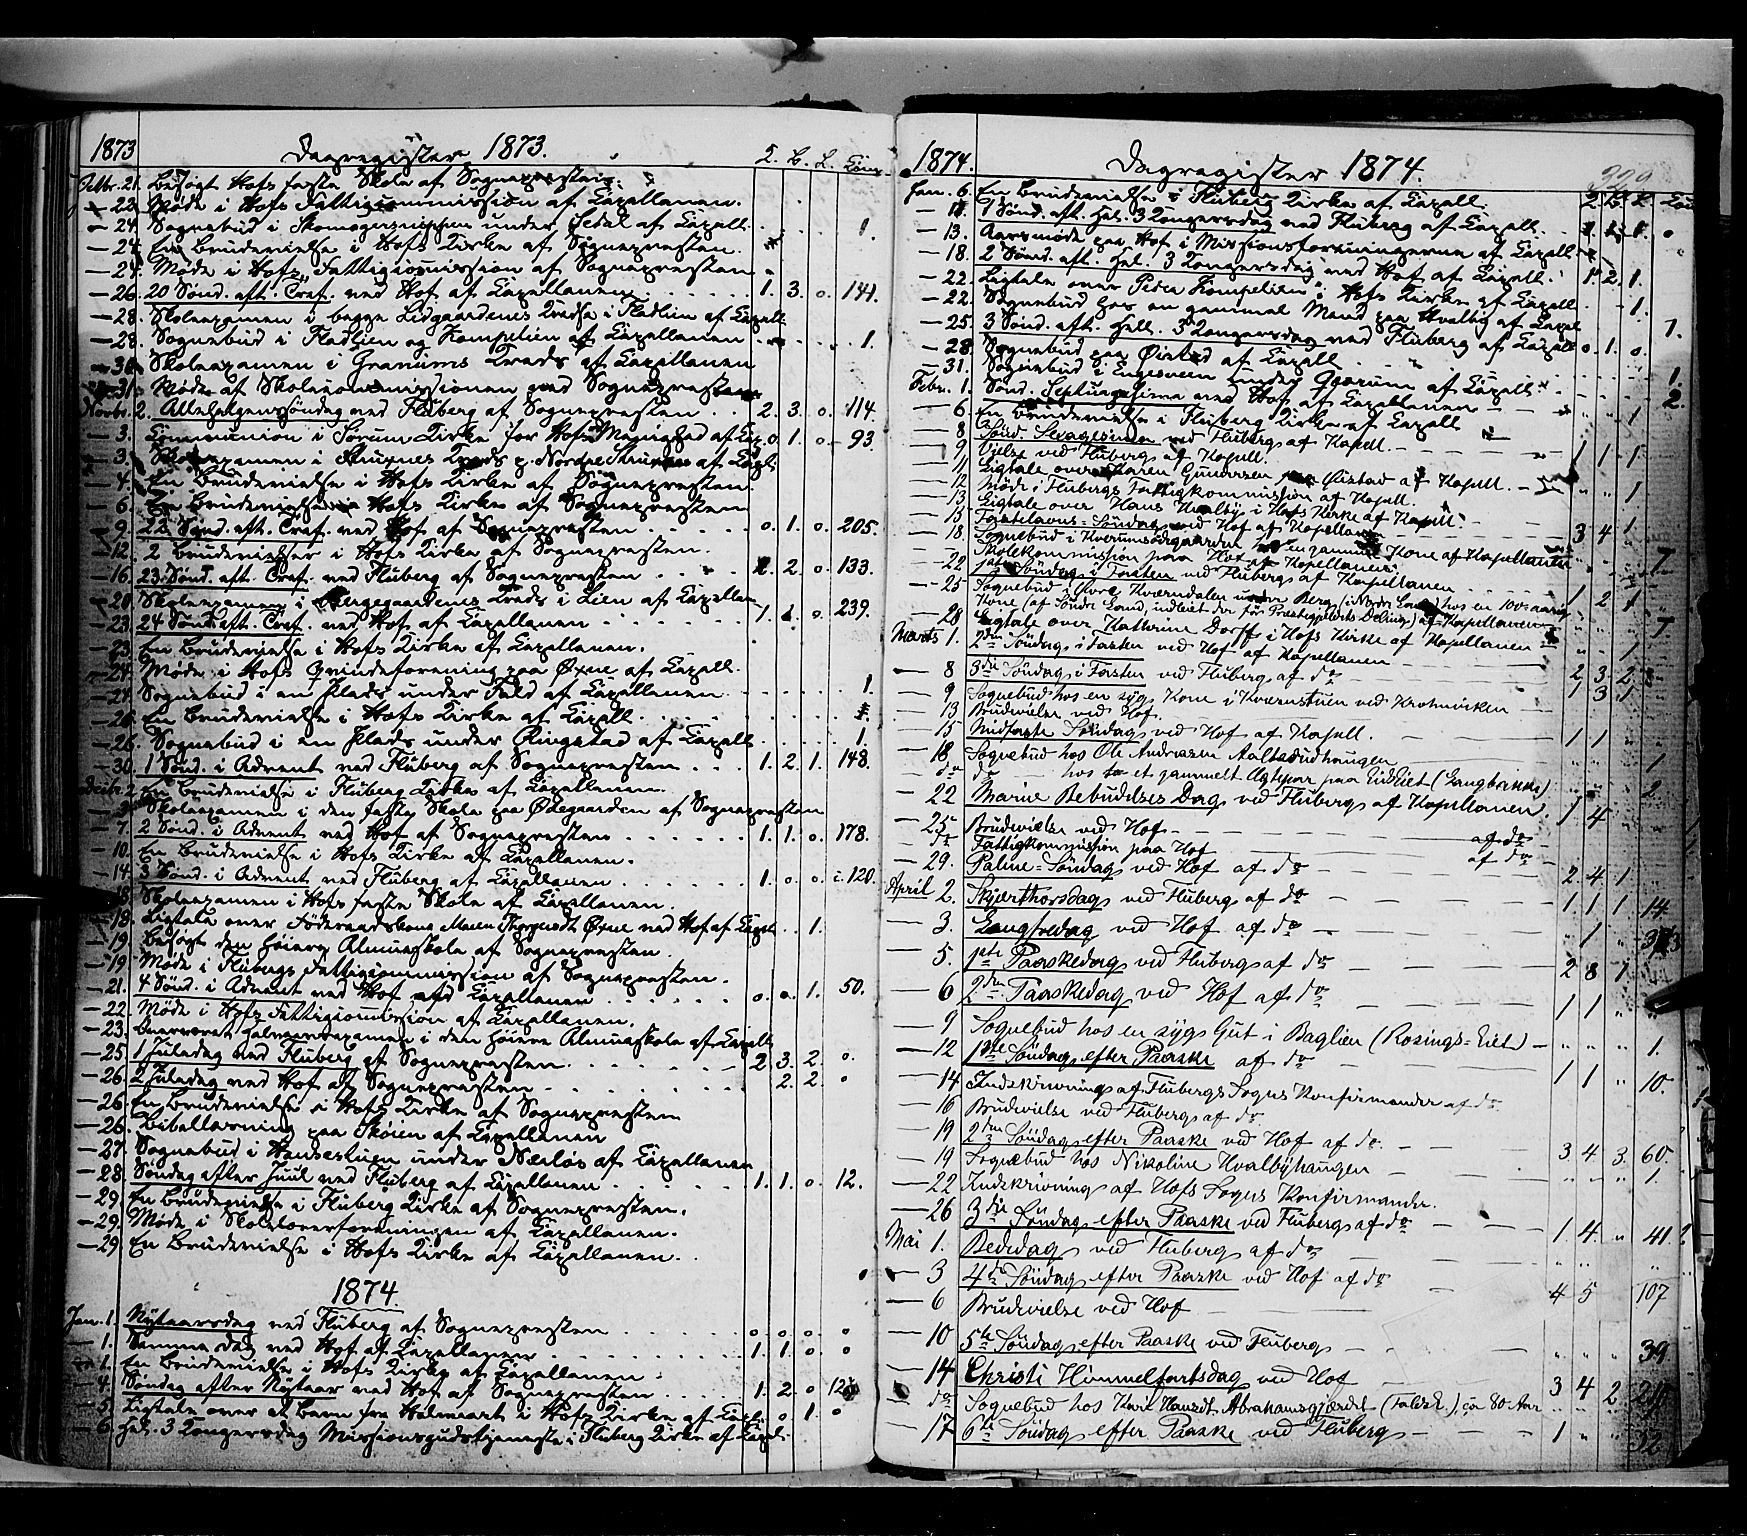 1873
Dagregister 1873.
21. Besøgt Hofs faste Skole af Sognepresten.
— 22. Møde i Hofs Fattigcommission af Capellanen.
— 24. Sognebud i under af Capell. 1.
— 24. En Brudevielse i Hofs Kirke af Sognepresten.
— 24. Møde i Hofs Fattigcommission af Sognepresten
— 26. 20 Sønd. aft. Tref. ved Hof af Capellanen 1. 3. 0. 141.
— 28. Skoleexamen i begge Lidgaardenes Kreds i Fladlien af Capell
— 28. Sognebud i Fladlien og Kompelien af Capellanen 1.
— 30. Skoleexamen i Granums Kreds af Capellanen
— 31. Møde af Skolecommissionen ved Sognepresten
Novbr. 2. Allehelgenssøndag ved Fluberg af Sognepresten 2. 3. 0. 114.
— 3. Communion i Sørum Kirke for Hofs Menighed af Cap. 0. 1. 0. 93
— 3. Skoleexamen i Kreds af Capl.
— 4. En Brudevielse i Hofs Kirke af Sognepresten.
— 6. En Brudevielse i Hofs Kirke af Sognepresten
— 9. 22 Sønd. aft. Tref. ved Hof af Sognepresten 0. 1. 0. 205.
— 12. 2 Brudevielser i Hofs Kirke af Sognepresten.
— 16. 23 Sønd. aft. Tref. ved Fluberg af Sognepresten 2. 0. 133.
— 20. Skoleexamen i Kreds i Lien af Capellanen
— 23. 24 Sønd. aft. Tref. ved Hof af Capellanen 1. 1. 0. 239.
— 23. En Brudevielse i Hofs Kirke af Capellanen.
— 24. Møde i Hofs Qvindeforening paa Øxne af Capell.
— 24. Sognebud i en Plads under Fald af Capellanen 1.
— 26. En Brudevielse i Hofs Kirke af Capell.
— 26. Sognebud i en Plads under Ringstad af Capell 1.
— 30. 1 Sønd. i Advent ved Fluberg af Sognepresten 1. 2. 1. 148.
Decbr. 2. En Brudevielse i Fluberg Kirke af Capellanen.
— 3. Skoleexamen i den faste Skole paa Ødegaarden af Sognepresten
— 7. 2 Sønd. i Advent ved Hof af Sognepresten 1. 1. 0. 178.
— 10. En Brudevielse i Hofs Kirke af Capellanen.
— 14. 3 Sønd. i Advent ved Fluberg af Capellanen 1. 0. 0. 120.
— 18. Skoleexamen i Hofs faste Skole af Capellanen.
— 18. Ligtale over Føderaadskone Maren Øxne ved Hof af Capell. 1.
— 19. Besøgt den høiere Almueskole af Sognepresten
— 19. Møde i Flubergs Fattigcommission af Sognepresten.
— 21. 4 Sønd. i Advent ved Hof ved Capellanen 0. 0. 1. 50.
— 22. Møde i Hofs Fattigcommission af Capellanen.
— 23. Overværet Halvaarsexamen i den høiere Almueskole af Capell
— 25. 1 Juledag ved Fluberg af Sognepresten 2. 3. 2. 0.
— 26. 2 Juledag ved Hof af Sognepresten 2. 2. 0
— 26. En Brudevielse i Hofs Kirke af Sognepresten
— 26. Bibellæsning paa Skøien af Capellanen
— 27. Sognebud i under Nærløs af Capellanen
— 28. Søndag efter Juul ved Fluberg af Capellanen 1. 1. 0. 12.
— 29. En Brudevielse i Fluberg Kirke af Sognepresten.
— 29. Møde i Skolelærerforeningen af Capellanen.
— 29. En Brudevielse i Hofs Kirke af Capellanen.
1874.
Jan. 1. Nytaarsdag ved Fluberg af Sognepresten 0. 0. 0. 0
— 1. Samme Dag ved Hof af Capellanen 1. 1. 0. 0
— 1. En Brudevielse i Hofs Kirke af Capellanen.
— 4. Søndag efter Nytaar ved Hof af Sognepresten 1. 2. 0
— 5. Ligtale over et Barn fra i Hofs Kirke af Capl. 0 1. 0
— 6. Hel. 3 Kongersdag Missionsgudstjeneste i Fluberg Kirke af Capl.
1874.
Dagregister 1874.
Jan. 6. En Brudevielse i Fluberg Kirke af Capell.
— 11. 1 Sønd. aft. Hel. 3 Kongersdag ved Fluberg af Capell.
— 13. Aarsmøde paa Hof i Missionsforeningerne af Capell
— 18. 2 Sønd. aft. Hel. 3 Kongersdag ved Hof af Capell. 1. 2. 1.
— 22. Ligtale over Petra Kompelien i Hofs Kirke af Capell. 1.
— 22. Sognebud hos en gammel Mand paa Hvalby af Capel 1.
— 25. 3 Sønd. aft. Hell. 3 Kongersdag ved Fluberg af Capell 0. 1. 0.
— 28. Sognebud paa Øistad af Capell 1.
— 31. Sognebud i Engesveen under Gaarum af Capell. 2.
Febr. 1. Sønd. Septuagesima ved Hof af Capellanen
— 6. En Brudevielse i Fluberg Kirke af Capell 1
— 8. Sønd. Sexagesima ved Fluberg af Kapell. 1 1 1
9. Vielse ved Fluberg af Kapell.
11. Ligtale over Karen Gunarsen Øistad af Kapell. 1
12 Møde i Flubergs Fattigkommission af Kapell.
13. Ligtale over Hans Hvalby i Hofs Kirke af Kapell. 1
15 Fastelavns-Søndag ved Hof af Kapellanen 3 4 1
18. Sognebud i Kværumsødegaarden hos en gammel Kone af Kapellanen 1
Skolekommission paa Hof af Kapellanen
— 22 1ste Søndag i Fasten ved Flubergs af Kapellanen 1 2 1
— 25 Sognebud i Øvre Kværndalen under Berg (i Nordre Land) hos en 100 aarig
Kone (af Søndre Land, indleiet der før Præstegjeldets Deling) af Kapellanen 1
28 Ligtale over Kathrine Dorff i Hofs Kirke af Kapellanen 1
Marts 1. 2den Søndag i Fasten ved Hof af Kapellanen 2 3 2
— 8 3die Søndag i Fasten ved Fluberg af do 1 3 1
— 9 Sognebud hos en syg Kone i Kværnstuen ved Krokvirken
— 13 Brudevielse ved Hof.
— 15 Midfaste Søndag ved Hof af Kapell. 1 1
— 18. Sognebud hos Ole Andersen Aaltsødudhaugen 1
— do do hos et gammelt Ægtepar paa Eidseiet (Langbrække) 2
— 22 Mariæ Bebudelses Dag ved Flubergs af Kapellanen 1 4
— 25 Brudevielse ved Hof af do
do Fattigkommission paa Hof af do
— 29. Palme-Søndag ved Hof af do 2 4 1
April 2. Skjærthorsdag ved Flubergs af do 1. 1 1 14.
— 3. Langfredag ved Hof af do 1
5. 1ste Paaskedag ved Flubergs af do 2 8 1
— 6 2den Paaskedag ved Hof af do 1 1
— 9 Sognebud hos en syg Gut i Baglien (Rosings-Eiet) 1.
— 12 1ste Søndag efter Paaske af do 1 1 10.
— 14 Indskrivning af Flubergs Sogns Konfirmander af do
— 16 Brudevielse ved Flubergs af do
— 19 2den Søndag efter Paaske ved Hof af do 3 4 3. 60.
— 19 Sognebud hos Nikoline Hvalbyhaugen 1.
— 22 Indskrivning af Hofs Sogns Konfirmander.
— 26 3die Søndag efter Paaske ved Flubergs af do 1. 4. 41.
Mai 1. Bededag ved Flubergs af do
— 3 4de Søndag efter Paaske ved Hof af do 4 5 107
— 6 Brudevielse ved Hof
— 10 5te Søndag efter Paaske ved Flubergs 39
— 14 Christi Himmelfartsdag ved Hof 3 4 2
do Sognebud hos Kari Abrahamsgjærdet (Faldet) ca 80 Aar
— 17 6te Søndag efter Paaske ved Flubergs 1 52